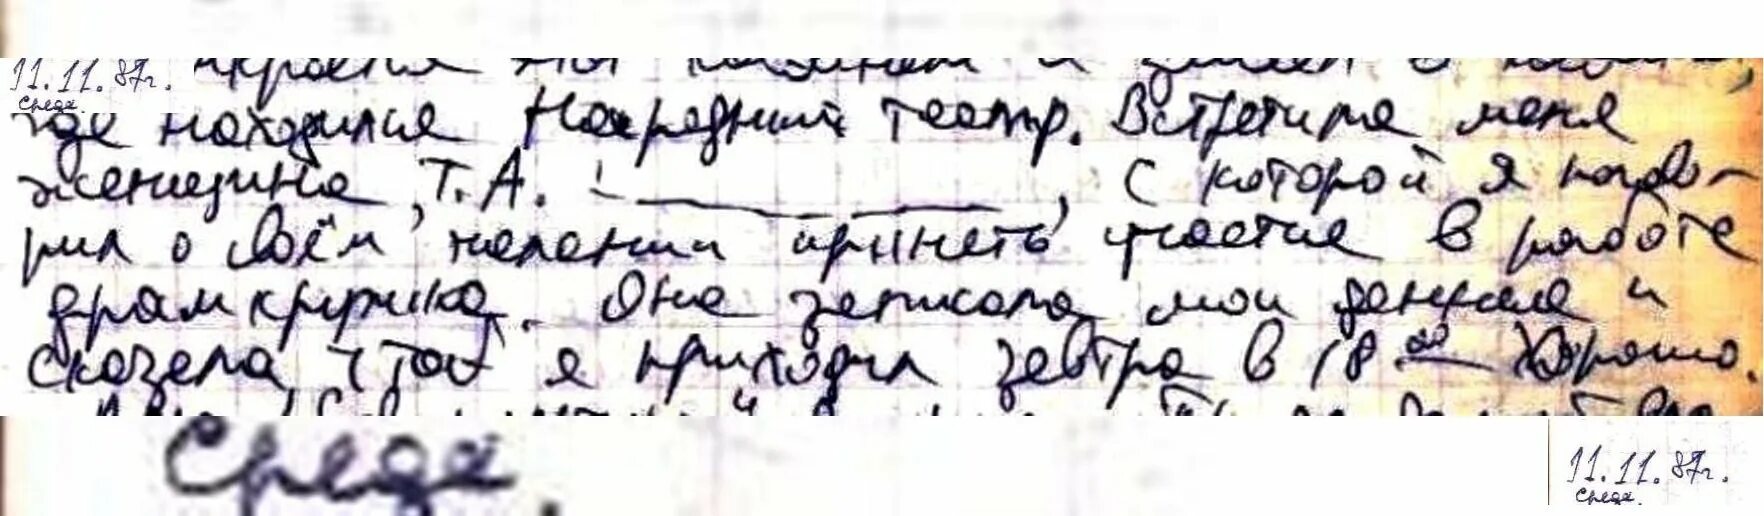 11.11.87г.
Среда.
где находился Народный театр. Встретила меня
женщина, Т.А. , с которой я погово-
рил о своём желении принеть участие в работе
драмкружка. Она записала мои данные и
сказала, чтоб я приходил завтра в 18 00 Хорошо.
Среда.
11.11.87г.
Среда.